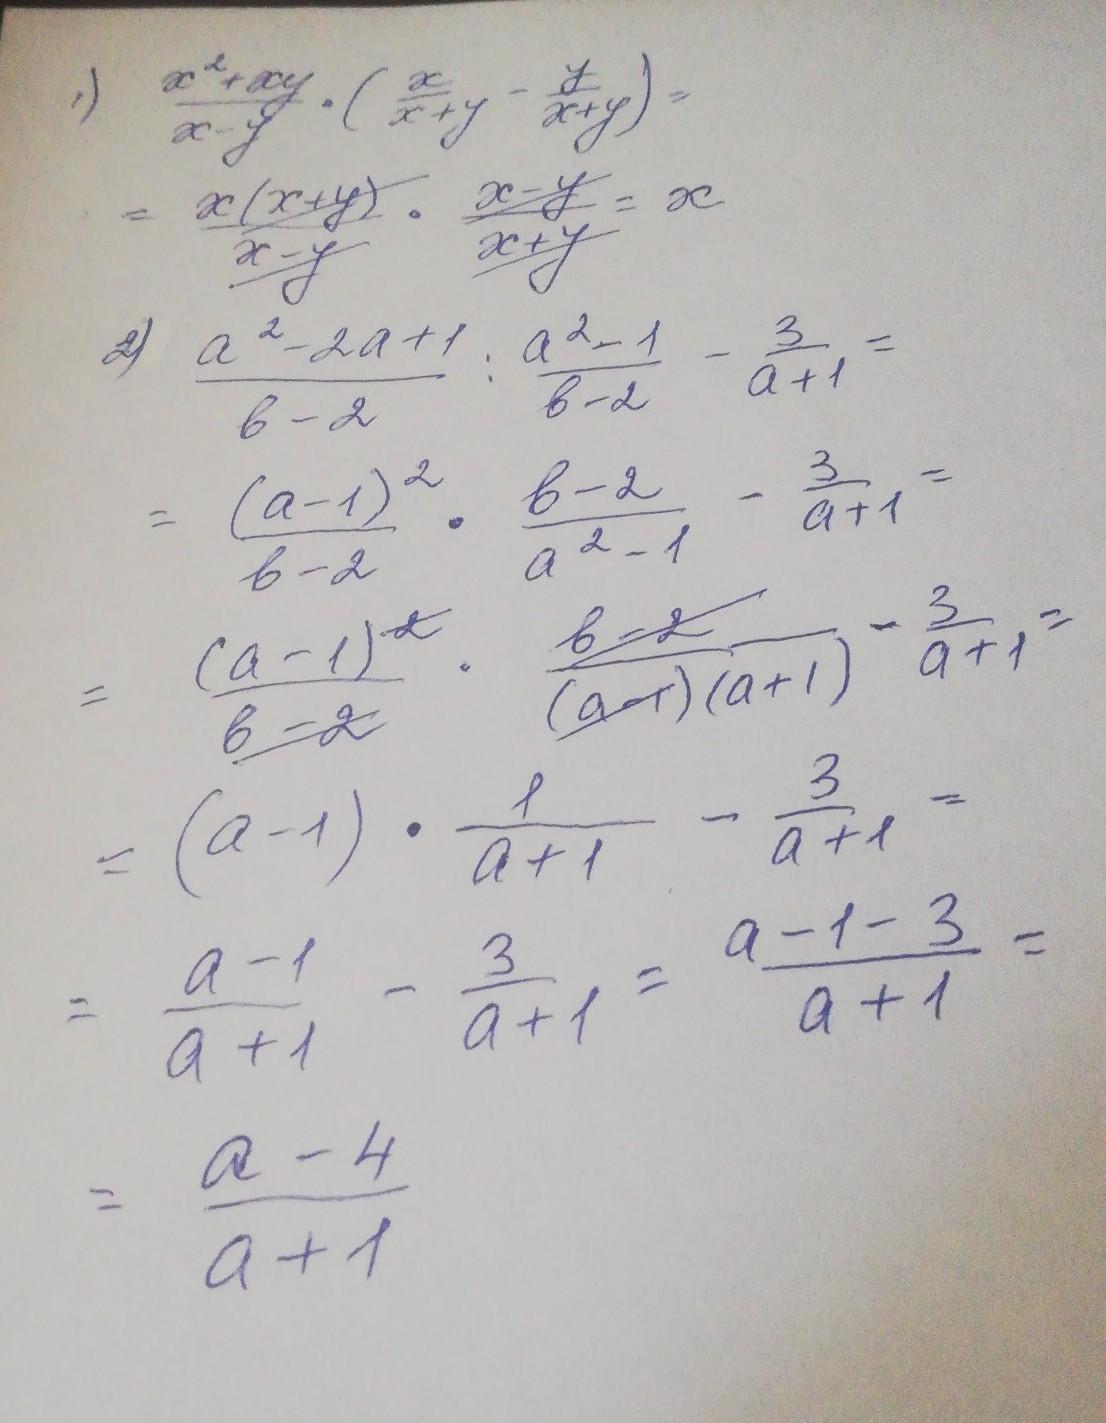 1) (x²+xy)/(x-y) · (x/(x+y) - y/(x+y)) =
= x(x+y)/(x-y) · (x-y)/(x+y) = x
2) (a²-2a+1)/(b-2) : (a²-1)/(b-2) - 3/(a+1) =
= (a-1)²/(b-2) · (b-2)/(a²-1) - 3/(a+1) =
= (a-1)²/(b-2) · (b-2)/((a-1)(a+1)) - 3/(a+1) =
= (a-1) · 1/(a+1) - 3/(a+1) =
= (a-1)/(a+1) - 3/(a+1) = (a-1-3)/(a+1) =
= (a-4)/(a+1)